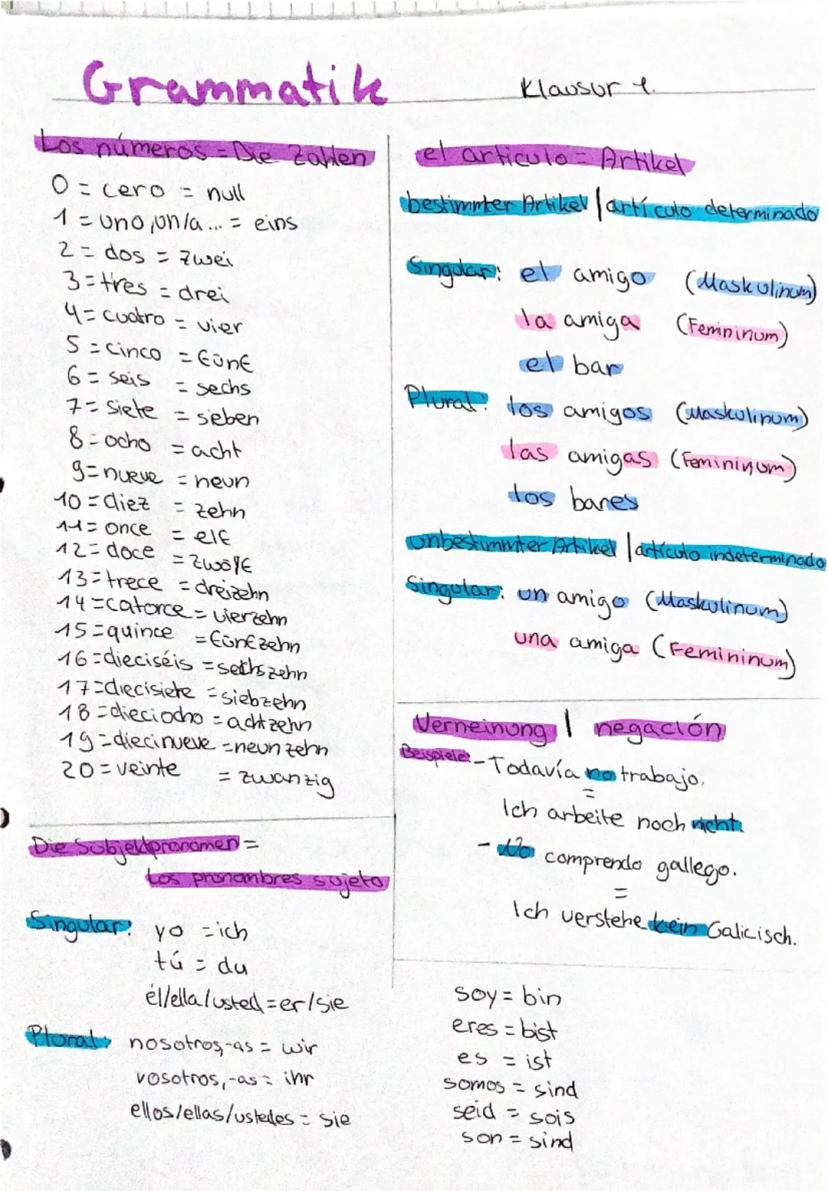 Grammatik
Klausur 1.
Los números = Die Zahlen
0 = cero = null
1 = uno, un/a... = eins
2 = dos = zwei
3 = tres = drei
4 = cuatro = vier
5 = cinco = fünf
6 = seis = sechs
7 = siete = sieben
8 = ocho = acht
9 = nueve = neun
10 = diez = zehn
11 = once = elf
12 = doce = zwölf
13 = trece = dreizehn
14 = catorce = vierzehn
15 = quince = fünfzehn
16 = dieciséis = sechszehn
17 = diecisiete = siebzehn
18 = dieciocho = achtzehn
19 = diecinueve = neunzehn
20 = veinte = zwanzig
Die Subjektpronomen =
Los pronombres sujeto
Singular: yo = ich
tú = du
él/ella/usted = er/sie
Plural: nosotros,-as = wir
vosotros,-as = ihr
ellos/ellas/ustedes = sie
el articulo = Artikel
bestimmter Artikel | artículo determinado
Singular: el amigo (Maskulinum)
la amiga (Femininum)
el bar
Plural: los amigos (Maskulinum)
las amigas (Femininum)
los bares
unbestimmter Artikel | artículo indeterminado
Singular: un amigo (Maskulinum)
una amiga (Femininum)
Verneinung | negación
Beispiele: - Todavía no trabajo.
=
Ich arbeite noch nicht.
- No comprendo gallego.
=
Ich verstehe kein Galicisch.
soy = bin
eres = bist
es = ist
somos = sind
seid = sois
son = sind